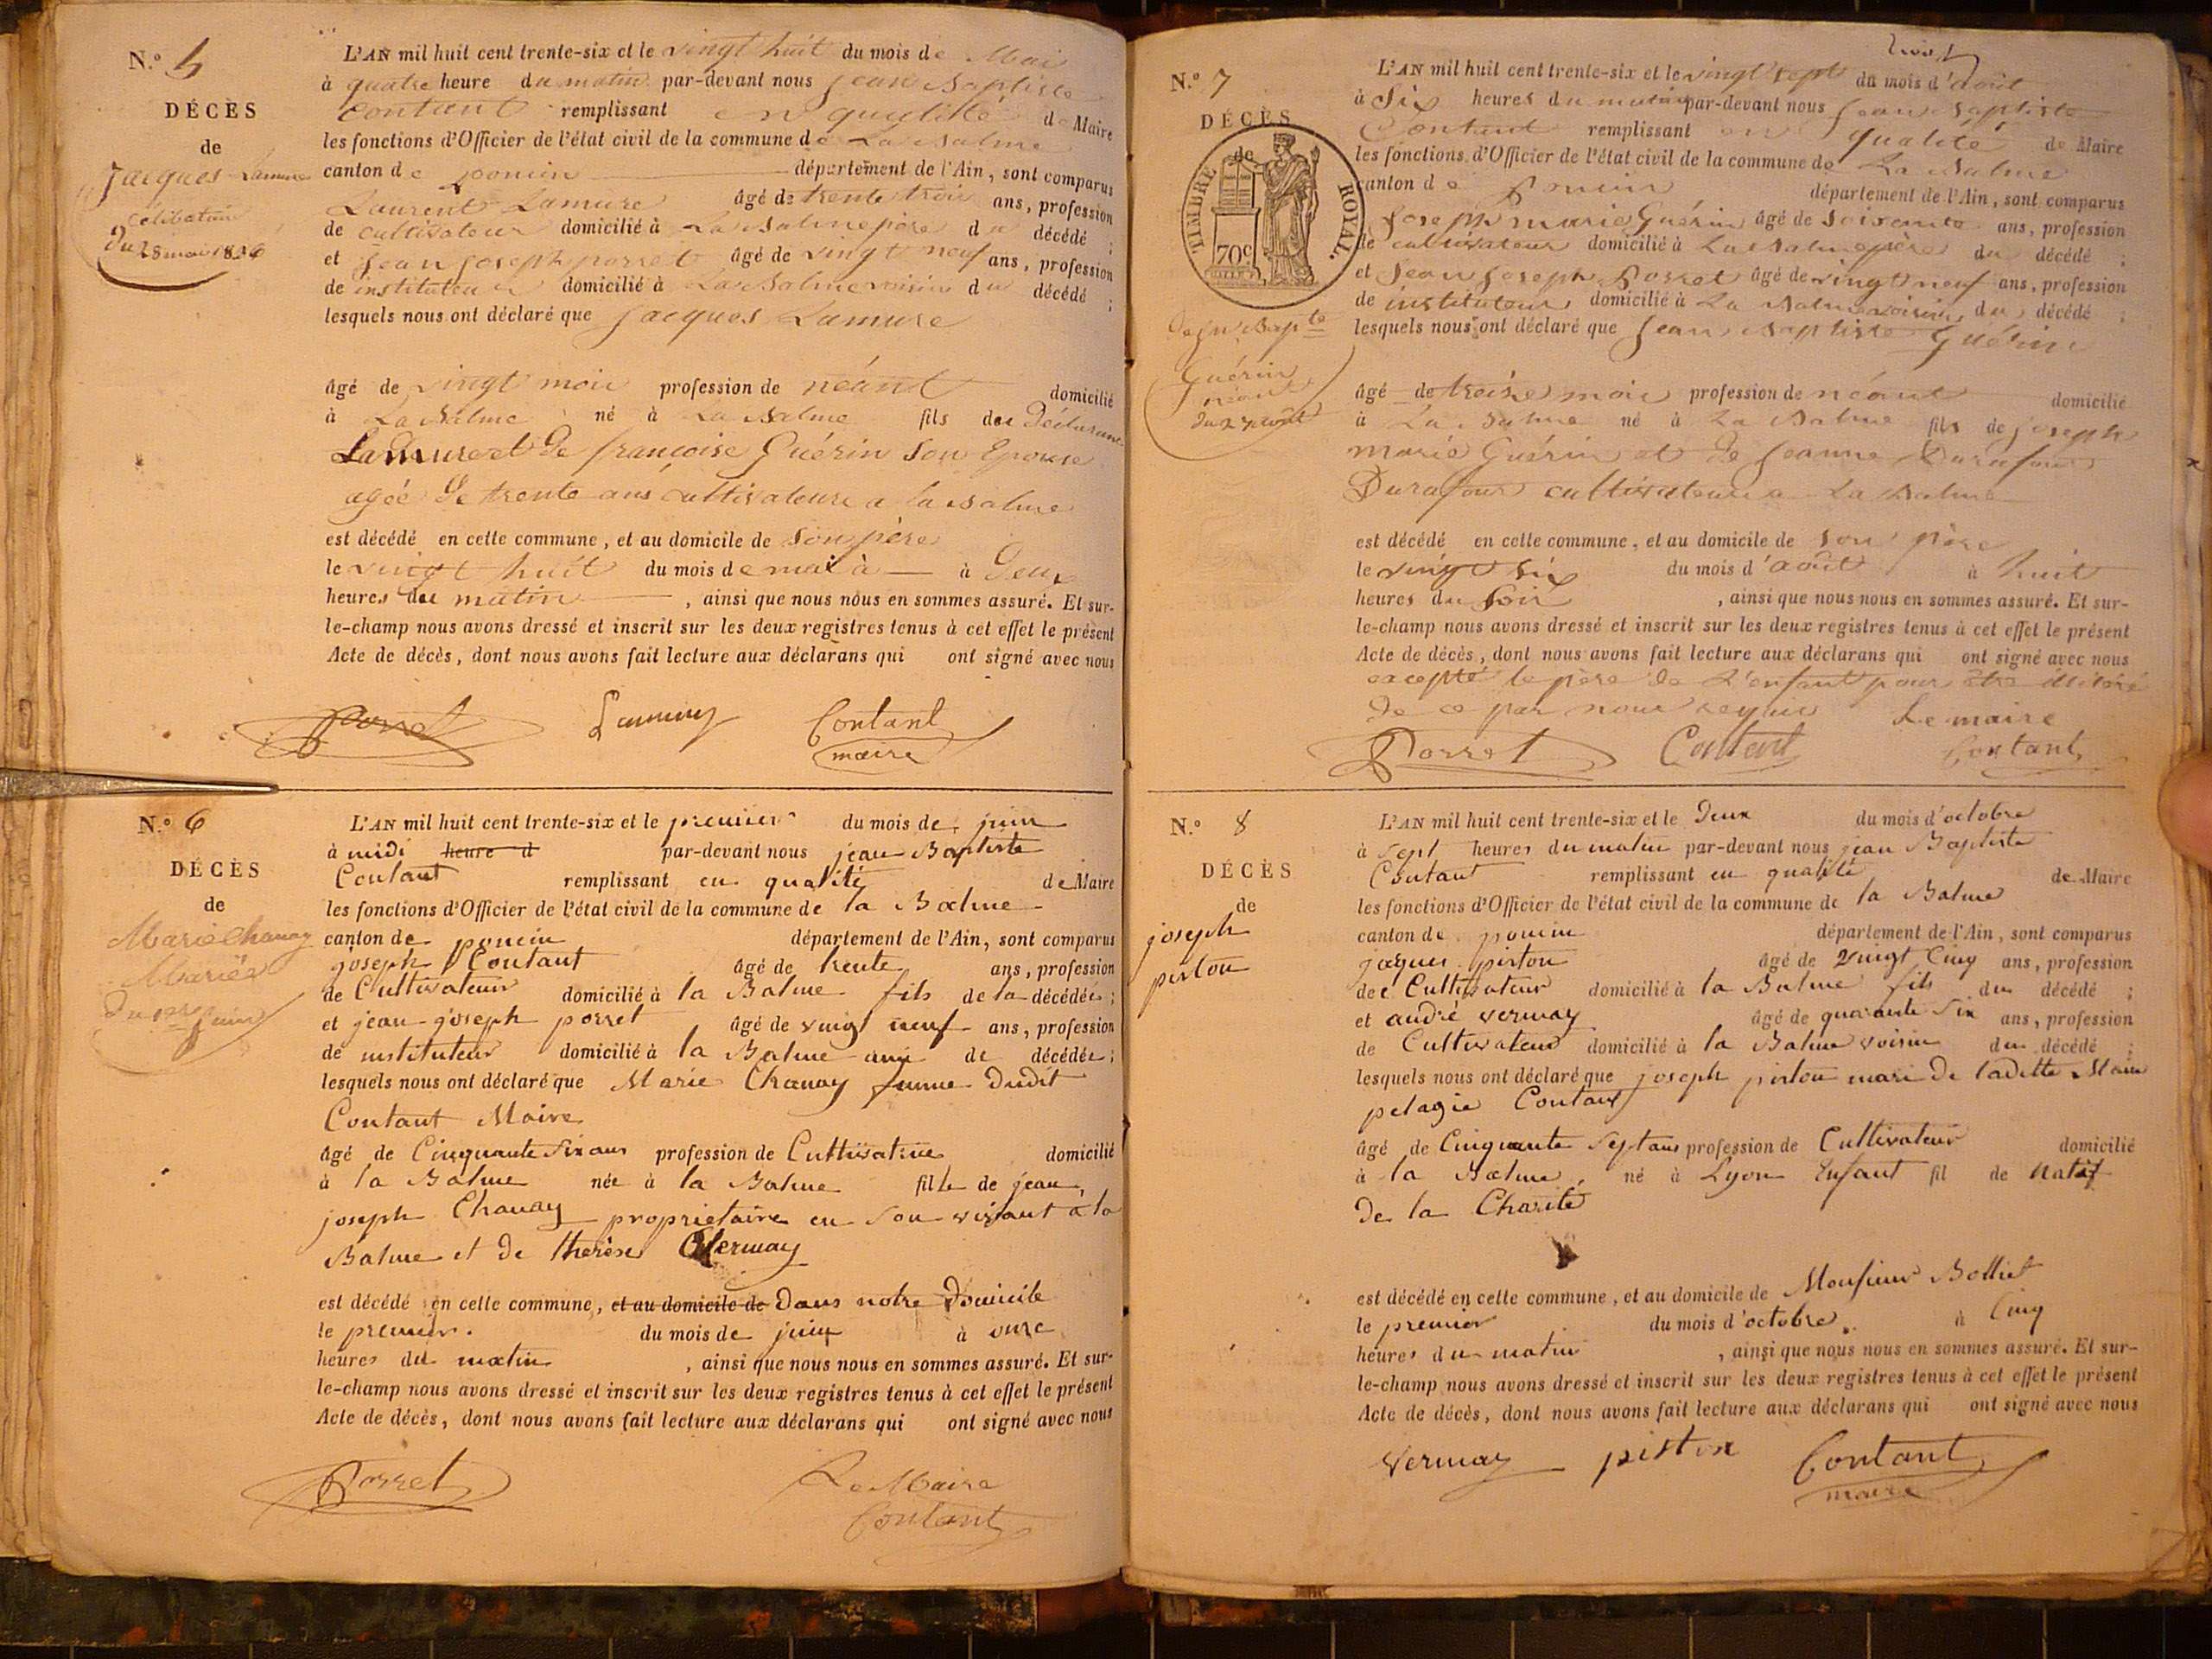 N.º 5
DÉCÈS
de
Jacques Lamure
célibataire
Du 28 mai 1836
L'AN mil huit cent trente-six et le vingt huit du mois de Mai
à quatre heure du matin par-devant nous Jean Baptiste
Contant remplissant en qualité de Maire
les fonctions d'Officier de l'état civil de la commune de La Balme
canton de poncin département de l'Ain, sont comparus
Laurent Lamure âgé de trente trois ans, profession
de cultivateur domicilié à La Balme père du décédé ;
et Jean Joseph porret âgé de vingt neuf ans, profession
de instituteur domicilié à La Balme voisin du décédé ;
lesquels nous ont déclaré que Jacques Lamure
âgé de vingt mois profession de néant domicilié
à La Balme né à La Balme fils des Déclarant
Lamure et De françoise Guérin Son Epouse
agée De trente ans cultivateurs a la Balme
est décédé en cette commune, et au domicile de Son père
le vingt huit du mois de mai à à Deux
heures du matin , ainsi que nous nous en sommes assuré. Et sur-
le-champ nous avons dressé et inscrit sur les deux registres tenus à cet effet le présent
Acte de décès, dont nous avons fait lecture aux déclarans qui ont signé avec nous
Porret Lamure Contant
maire
N.º 6
DÉCÈS
de
Marie Chanay
Mariée
Du 1er Juin
L'AN mil huit cent trente-six et le premier du mois de juin
à midi heure d par-devant nous jean Baptiste
Contant remplissant en qualité de Maire
les fonctions d'Officier de l'état civil de la commune de la Balme
canton de poncin département de l'Ain, sont comparus
joseph Contant âgé de trente ans, profession
de Cultivateur domicilié à la Balme fils de la décédée ;
et jean joseph porret âgé de vingt neuf ans, profession
de instituteur domicilié à la Balme ami de décédée ;
lesquels nous ont déclaré que Marie Chanay femme dudit
Contant Maire
âgé de Cinquante Six ans profession de Cultivatrice domicilié
à la Balme née à la Balme fille de jean
joseph Chanay propriétaire en Son vivant a la
Balme et de therèse Vermay
est décédé en cette commune, et au domicile de Dans notre Domicile
le premier. du mois de juin à onze
heures du matin , ainsi que nous nous en sommes assuré. Et sur-
le-champ nous avons dressé et inscrit sur les deux registres tenus à cet effet le présent
Acte de décès, dont nous avons fait lecture aux déclarans qui ont signé avec nous
Porret Le Maire
Contant
N.º 7
DÉCÈS
de
TIMBRE ROYAL.
70c
De Jn Bapte
Guérin
néant
Du 27 août
L'AN mil huit cent trente-six et le vingt sept du mois d'août
à Six heures du matin par-devant nous Jean Baptiste
Contant remplissant en qualité de Maire
les fonctions d'Officier de l'état civil de la commune de La Balme
canton de Poncin département de l'Ain, sont comparus
Joseph marie Guérin âgé de Soixante ans, profession
de cultivateur domicilié à La Balme père du décédé ;
et Jean Joseph Porret âgé de vingt neuf ans, profession
de instituteur domicilié à La Balme voisin du décédé ;
lesquels nous ont déclaré que Jean Baptiste Guérin
âgé de treize mois profession de néant domicilié
à La Balme né à La Balme fils de joseph
marie Guérin et De Jeanne Durafour
Durafour cultivateurs a La Balme
est décédé en cette commune, et au domicile de son père
le vingt six du mois d'août à huit
heures du Soir , ainsi que nous nous en sommes assuré. Et sur-
le-champ nous avons dressé et inscrit sur les deux registres tenus à cet effet le présent
Acte de décès, dont nous avons fait lecture aux déclarans qui ont signé avec nous
excepté le père de L'enfant pour être illitéré
De ce par nous requis Le maire
Porret Contant Contant
N.º 8
DÉCÈS
de
joseph
piston
L'AN mil huit cent trente-six et le Deux du mois d'octobre
à Sept heures du matin par-devant nous jean Baptiste
Contant remplissant en qualité de Maire
les fonctions d'Officier de l'état civil de la commune de la Balme
canton de poncin département de l'Ain, sont comparus
jaques piston âgé de vingt Cinq ans, profession
de Cultivateur domicilié à la Balme fils du décédé ;
et andré vermay âgé de quarante Six ans, profession
de Cultivateur domicilié à la Balme voisin du décédé ;
lesquels nous ont déclaré que joseph piston mari De laditte Marie
pelagie Contant
âgé de Cinquante Sept ans profession de Cultivateur domicilié
à la Balme né à Lyon Enfant fil de Natif
De la Charité
est décédé en cette commune, et au domicile de Monsieur Bolliet
le premier du mois d'octobre à Cinq
heures du matin , ainsi que nous nous en sommes assuré. Et sur-
le-champ nous avons dressé et inscrit sur les deux registres tenus à cet effet le présent
Acte de décès, dont nous avons fait lecture aux déclarans qui ont signé avec nous
vermay piston Contant
maire